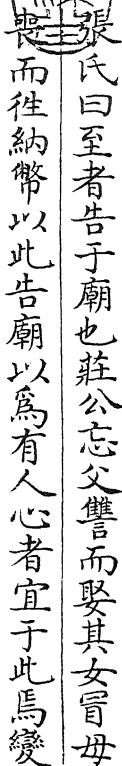 張氏曰至者告于廟也莊公忘父讐而娶其女冒母
喪而徃納幣以此告廟以爲有人心者宜于此焉變